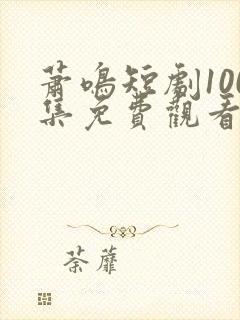 蕭鳴短劇100
集免費觀看
荼蘼